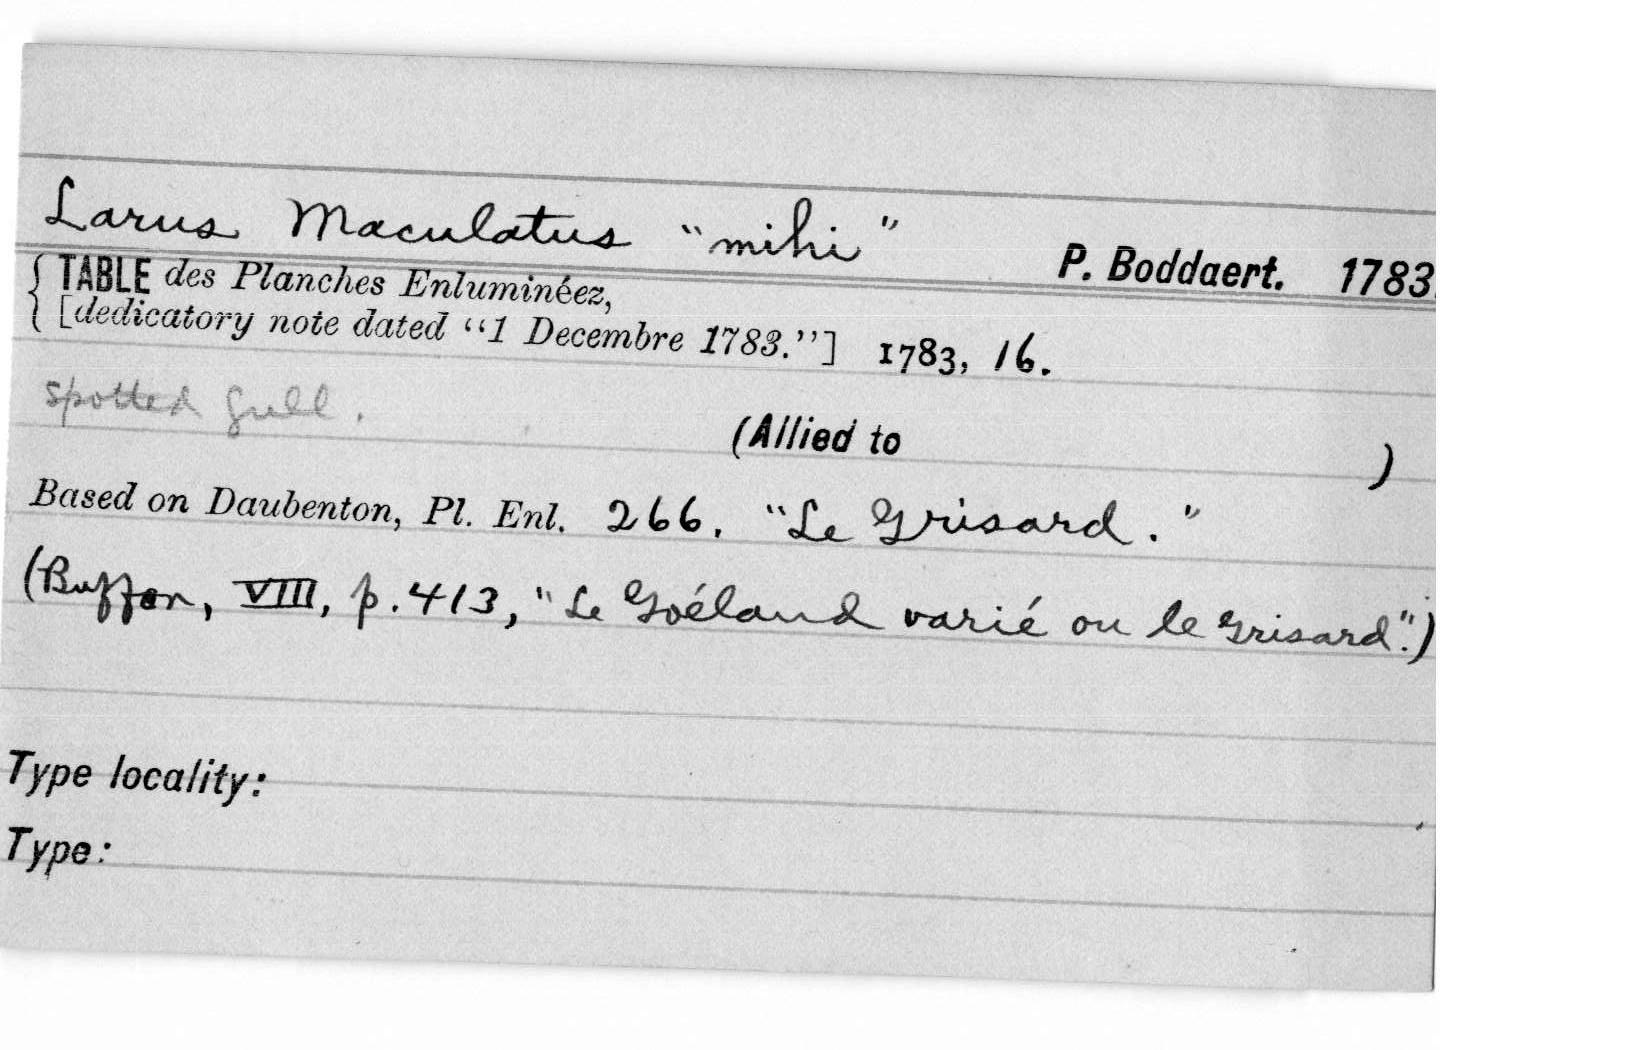 Larus Maculatus "mihi"
P. Boddaert. 1783.
TABLE des Planches Enluminéez,
[dedicatory note dated "1 Decembre 1783."] 1783, 16.
Spotted Gull.
(Allied to )
Based on Daubenton, Pl. Enl. 266. "Le Grisard."
(Buffon, VIII, p.413, "Le Goéland varié ou le Grisard".)
Type locality:
Type: